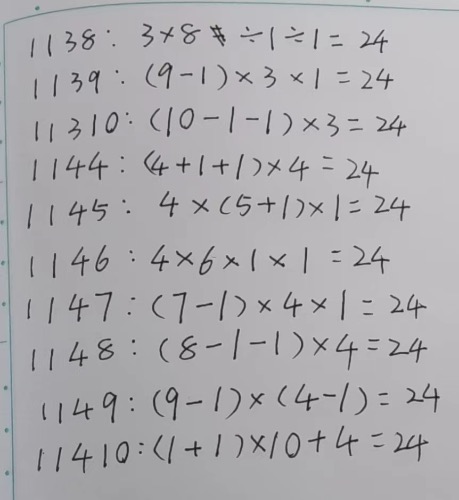 1138: 3×8÷1÷1=24
1139: (9-1)×3×1=24
11310: (10-1-1)×3=24
1144: (4+1+1)×4=24
1145: 4×(5+1)×1=24
1146: 4×6×1×1=24
1147: (7-1)×4×1=24
1148: (8-1-1)×4=24
1149: (9-1)×(4-1)=24
11410: (1+1)×10+4=24